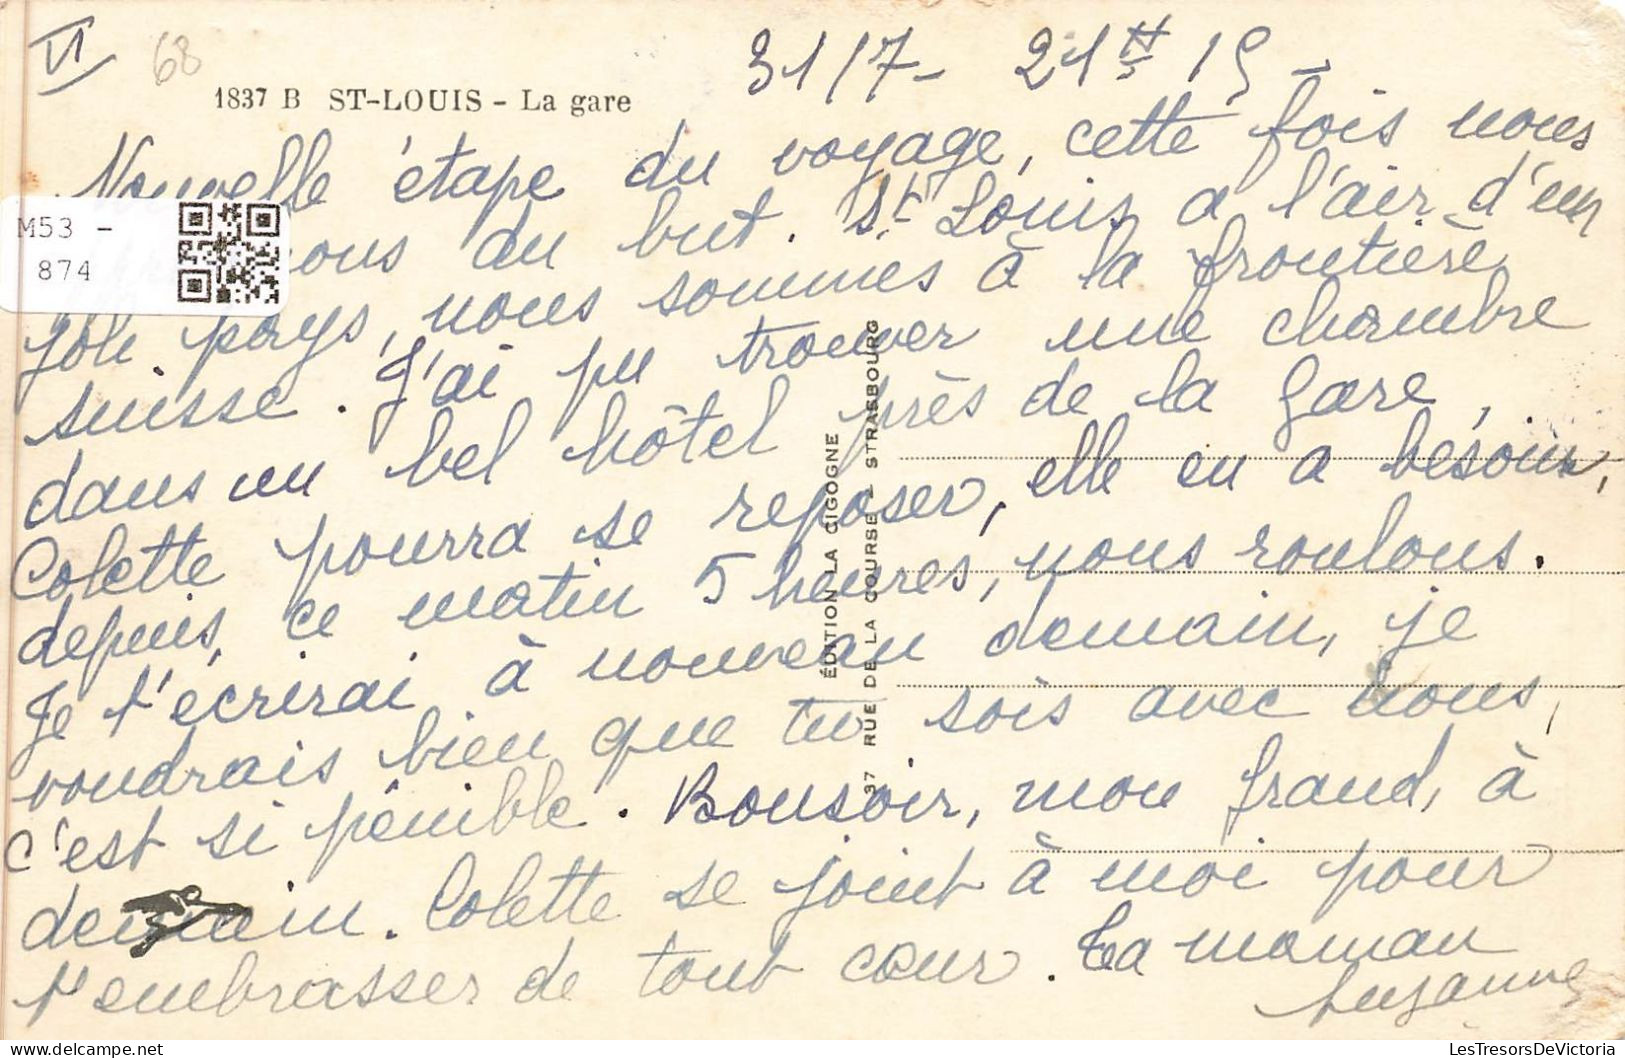 VI
68
1837 B ST-LOUIS - La gare
31/7 - 21H 15 -
Nouvelle étape du voyage, cette fois nous
du but. St Louis a l'air d'un
joli pays, nous sommes à la frontière
suisse. J'ai pu trouver une chambre
dans un bel hôtel près de la gare,
Colette pourra se reposer, elle en a besoin,
depuis ce matin 5 heures, nous roulons.
Je t'écrirai à nouveau demain, je
voudrais bien que tu sois avec nous,
c'est si pénible. Bonsoir, mon grand, à
demain. Colette se joint à moi pour
t'embrasser de tout cœur. Ta maman
Suzanne
M53 -
874
ÉDITION LA CIGOGNE
37 RUE DE LA COURSE - STRASBOURG
LesTresorsDeVictoria.com